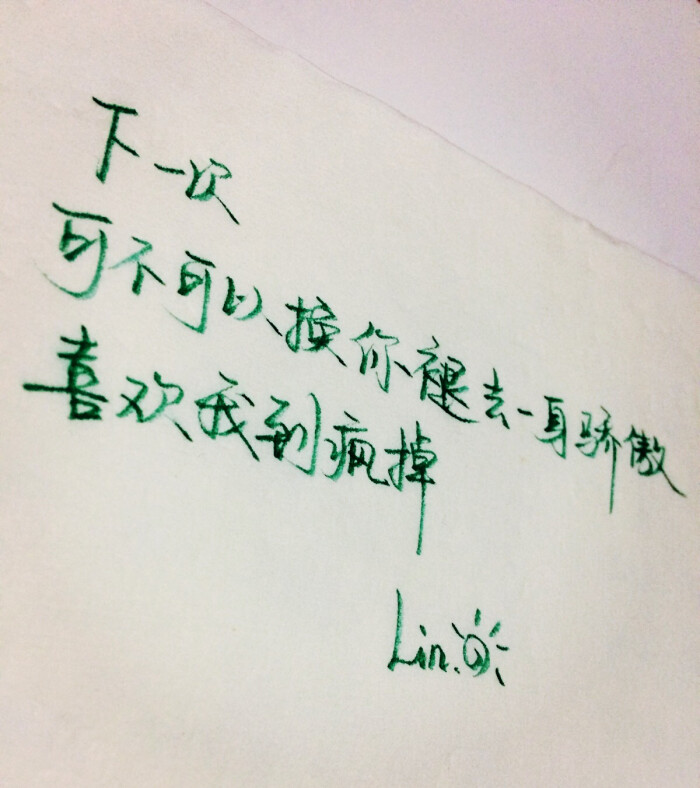 下一次
可不可以换你褪去一身骄傲
喜欢我到疯掉
Lin.